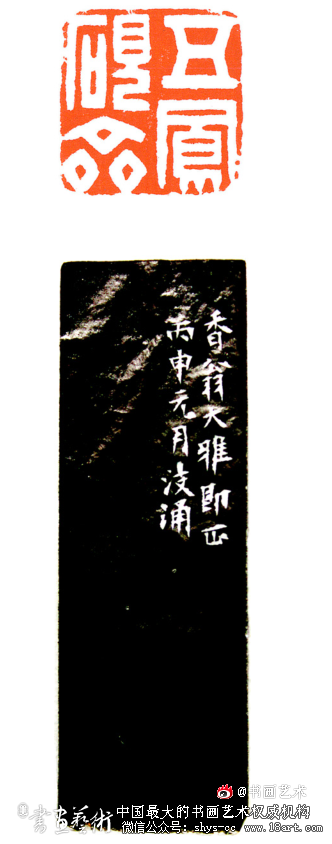 五鳳
硯齋
香翁大雅即正
丙申元月
@书画艺术
書畫藝術
中国最大的书画艺术权威机构
微信公众号：shys-cc www.18art.com